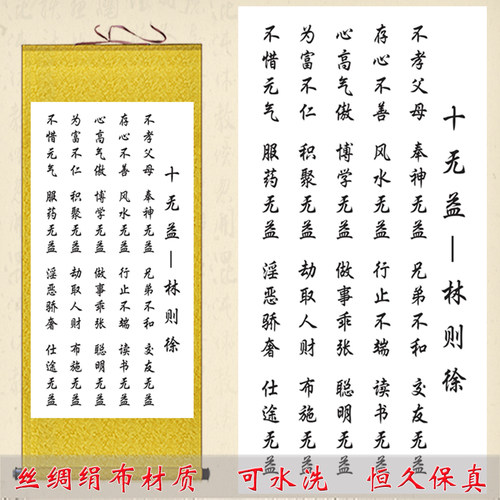 十无益—林则徐
不孝父母 奉神无益 兄弟不和 交友无益
存心不善 风水无益 行止不端 读书无益
心高气傲 博学无益 做事乖张 聪明无益
为富不仁 积聚无益 劫取人财 布施无益
不惜元气 服药无益 淫恶骄奢 仕途无益
十无益—林则徐
不孝父母 奉神无益 兄弟不和 交友无益
存心不善 风水无益 行止不端 读书无益
心高气傲 博学无益 做事乖张 聪明无益
为富不仁 积聚无益 劫取人财 布施无益
不惜元气 服药无益 淫恶骄奢 仕途无益
丝绸绢布材质 可水洗 恒久保真